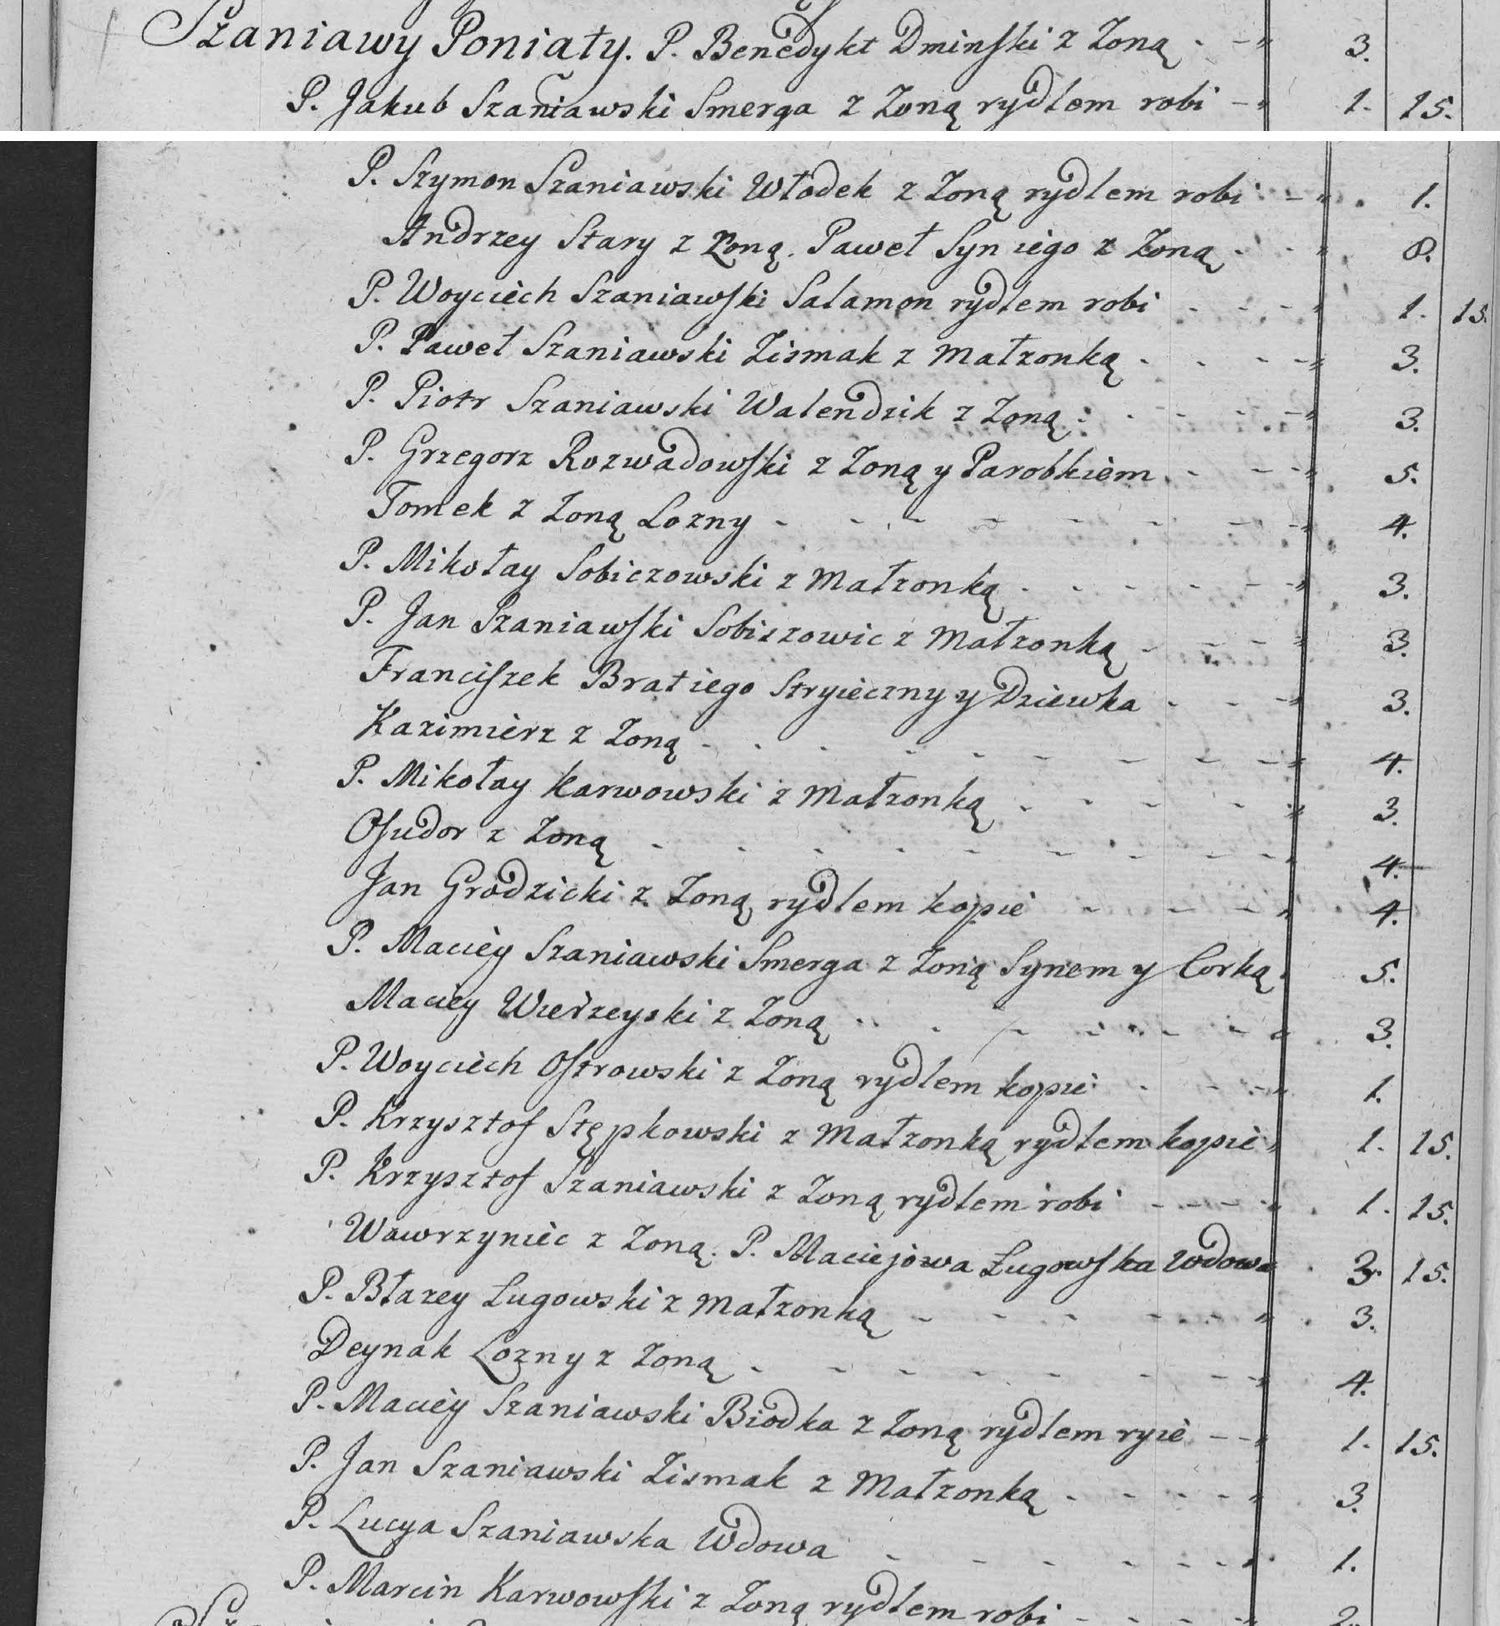 Szaniawy Poniaty. P. Benedykt Dminski z Zoną 3.
P. Jakub Szaniawski Smerga z Zoną rydlem robi 1. 15.
P. Szymon Szaniawski Włodek z Zoną rydlem robi 1.
Andrzey Stary z Zoną. Paweł Syn iego z Zoną 8.
P. Woyciech Szaniawski Salamon rydlem robi 1. 15.
P. Paweł Szaniawski Zismak z Małzonką 3.
P. Piotr Szaniawski Walendzik z Zoną 3.
P. Grzegorz Rozwadowski z Zoną y Parobkiem 5.
Tomek z Zoną Lozny 4.
P. Mikołay Sobiczowski z Małzonką 3.
P. Jan Szaniawski Sobiszowic z Małzonką 3.
Franciszek Brat iego Stryieczny y Dziewka 3.
Kazimierz z Zoną 4.
P. Mikołay Karwowski z Małzonką 3.
Osudor z Zoną 4.
Jan Grodzicki z Zoną rydlem kopie 4.
P. Maciey Szaniawski Smerga z Zoną Synem y Corką 5.
Maciey Wierzeyski z Zoną 3.
P. Woyciech Ostrowski z Zoną rydlem kopie 1.
P. Krzysztof Stępkowski z Małzonką rydlem kopie 1. 15.
P. Krzysztof Szaniawski z Zoną rydlem robi 1. 15.
Wawrzyniec z Zoną. P. Maciejowa Ługowska Wdowa 3. 15.
P. Błazey Ługowski z Małzonką 3.
Deynak Lozny z Zoną 4.
P. Maciey Szaniawski Biodka z Zoną rydlem ryie 1. 15.
P. Jan Szaniawski Zismak z Małzonką 3.
P. Lucya Szaniawska Wdowa 1.
P. Marcin Karwowski z Zoną rydlem robi 2.